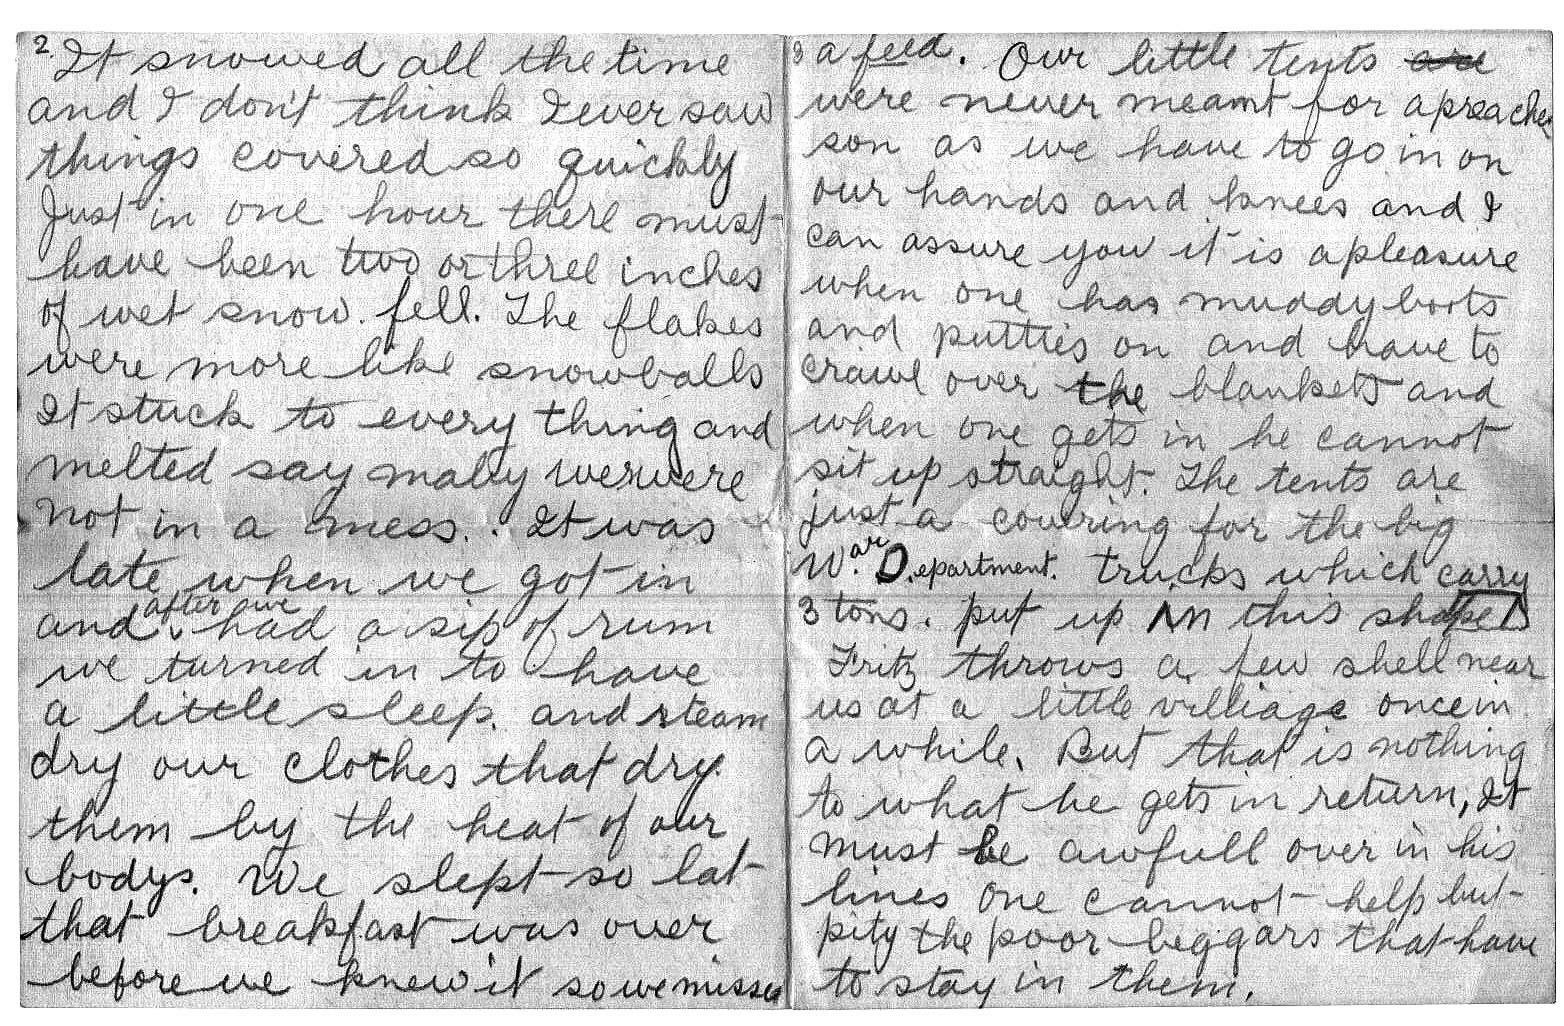 2.
It snowed all the time
and I don't think I ever saw
things covered so quickly
Just in one hour there must
have been two or three inches
of wet snow. fell. The flakes
were more like snowballs
It stuck to every thing and
melted say maby we were
not in a mess.. It was
late when we got in
and after we had a sip of rum
we turned in to have
a little sleep. and steam
dry our clothes that dry.
them by the heat of our
bodys. We slept so lat
that breakfast was over
before we knew it so we missed
3
a feed. Our little tents are
were never meant for a preacher
son as we have to go in on
our hands and knees and I
can assure you it is a pleasure
when one has muddy boots
and putties on and have to
crawl over the blankets and
when one gets in he cannot
sit up straight. The tents are
just a covring for the big
War Department. trucks which carry
3 tons. put up in this shape
Fritz throws a few shell near
us at a little villiage once in
a while. But that is nothing
to what he gets in return, It
must be awfull over in his
lines one cannot help but
pity the poor beggars that have
to stay in them.